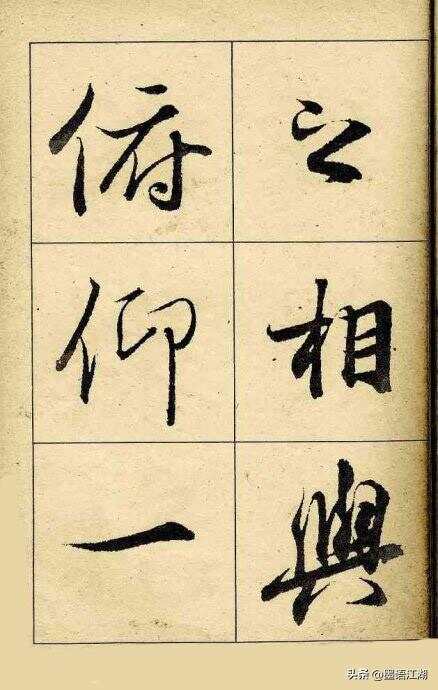 之相與
俯仰一
头条@墨语江湖